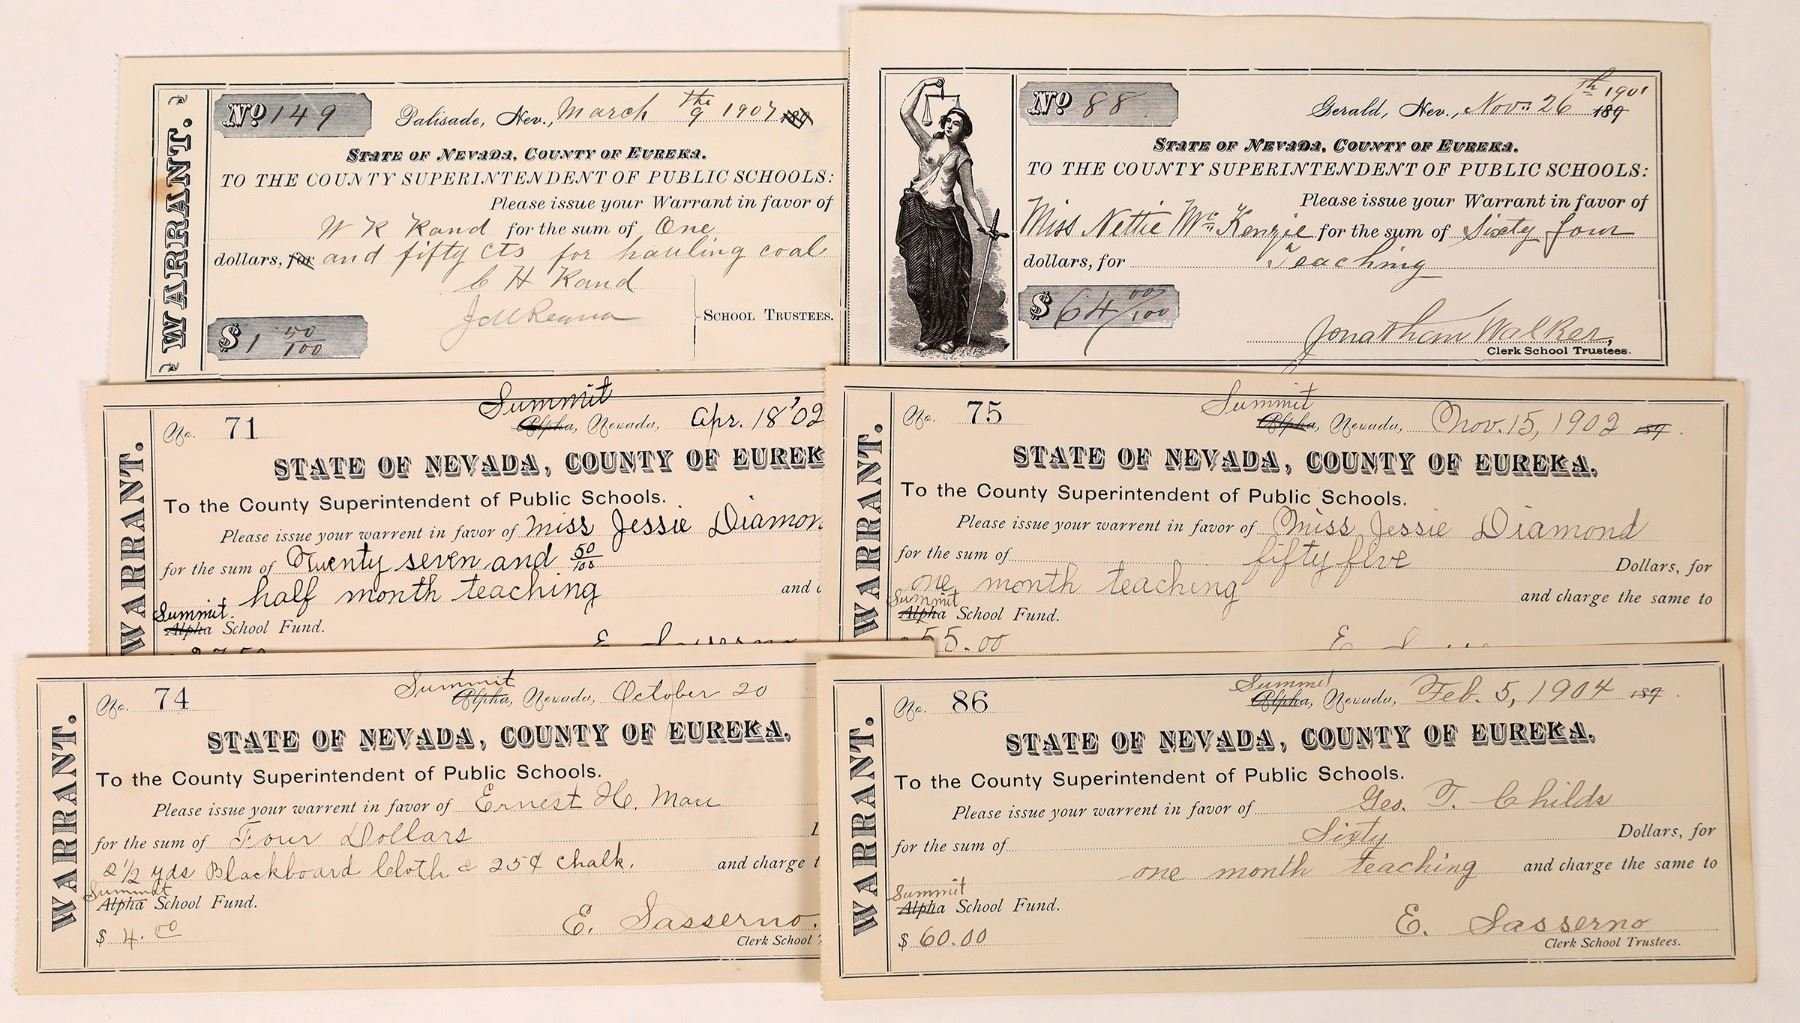 WARRANT.
No 149
Palisade, Nev., March the 9 1907 189
STATE OF NEVADA, COUNTY OF EUREKA.
TO THE COUNTY SUPERINTENDENT OF PUBLIC SCHOOLS:
Please issue your Warrant in favor of
W R Rand for the sum of One
dollars, for and fifty cts for hauling coal
C H Rand
SCHOOL TRUSTEES.
$1 50/100
No 88
Gerald, Nev., Nov. 26th 1901 189
STATE OF NEVADA, COUNTY OF EUREKA.
TO THE COUNTY SUPERINTENDENT OF PUBLIC SCHOOLS:
Please issue your Warrant in favor of
Miss Nettie McKenzie for the sum of Sixty four
dollars, for Teaching
$64 00/100
Jonathan Walker,
Clerk School Trustees.
WARRANT.
No. 71
Summit
Alpha, Nevada, Apr. 18 '02
STATE OF NEVADA, COUNTY OF EUREK
To the County Superintendent of Public Schools.
Please issue your warrent in favor of Miss Jessie Diamon
for the sum of Twenty seven and 50/100
half month teaching and c
Summit
Alpha School Fund.
$27.50
E. Sasserno
WARRANT.
No. 75
Summit
Alpha, Nevada, Nov. 15, 1902 189
STATE OF NEVADA, COUNTY OF EUREKA.
To the County Superintendent of Public Schools.
Please issue your warrent in favor of Miss Jessie Diamond
for the sum of fifty five Dollars, for
one month teaching and charge the same to
Summit
Alpha School Fund.
$55.00
WARRANT.
No. 74
Summit
Alpha, Nevada, October 20
STATE OF NEVADA, COUNTY OF EUREKA.
To the County Superintendent of Public Schools.
Please issue your warrent in favor of Ernest H. Mau
for the sum of Four Dollars
2 1/2 yds Blackboard Cloth & 25¢ chalk. and charge t
Summit
Alpha School Fund.
$4.00
E. Sasserno,
Clerk School
WARRANT.
No. 86
Summit
Alpha, Nevada, Feb. 5, 1904 189
STATE OF NEVADA, COUNTY OF EUREKA.
To the County Superintendent of Public Schools.
Please issue your warrent in favor of Geo. T. Childs
for the sum of Sixty Dollars, for
one month teaching and charge the same to
Summit
Alpha School Fund.
$60.00
E. Sasserno
Clerk School Trustees.